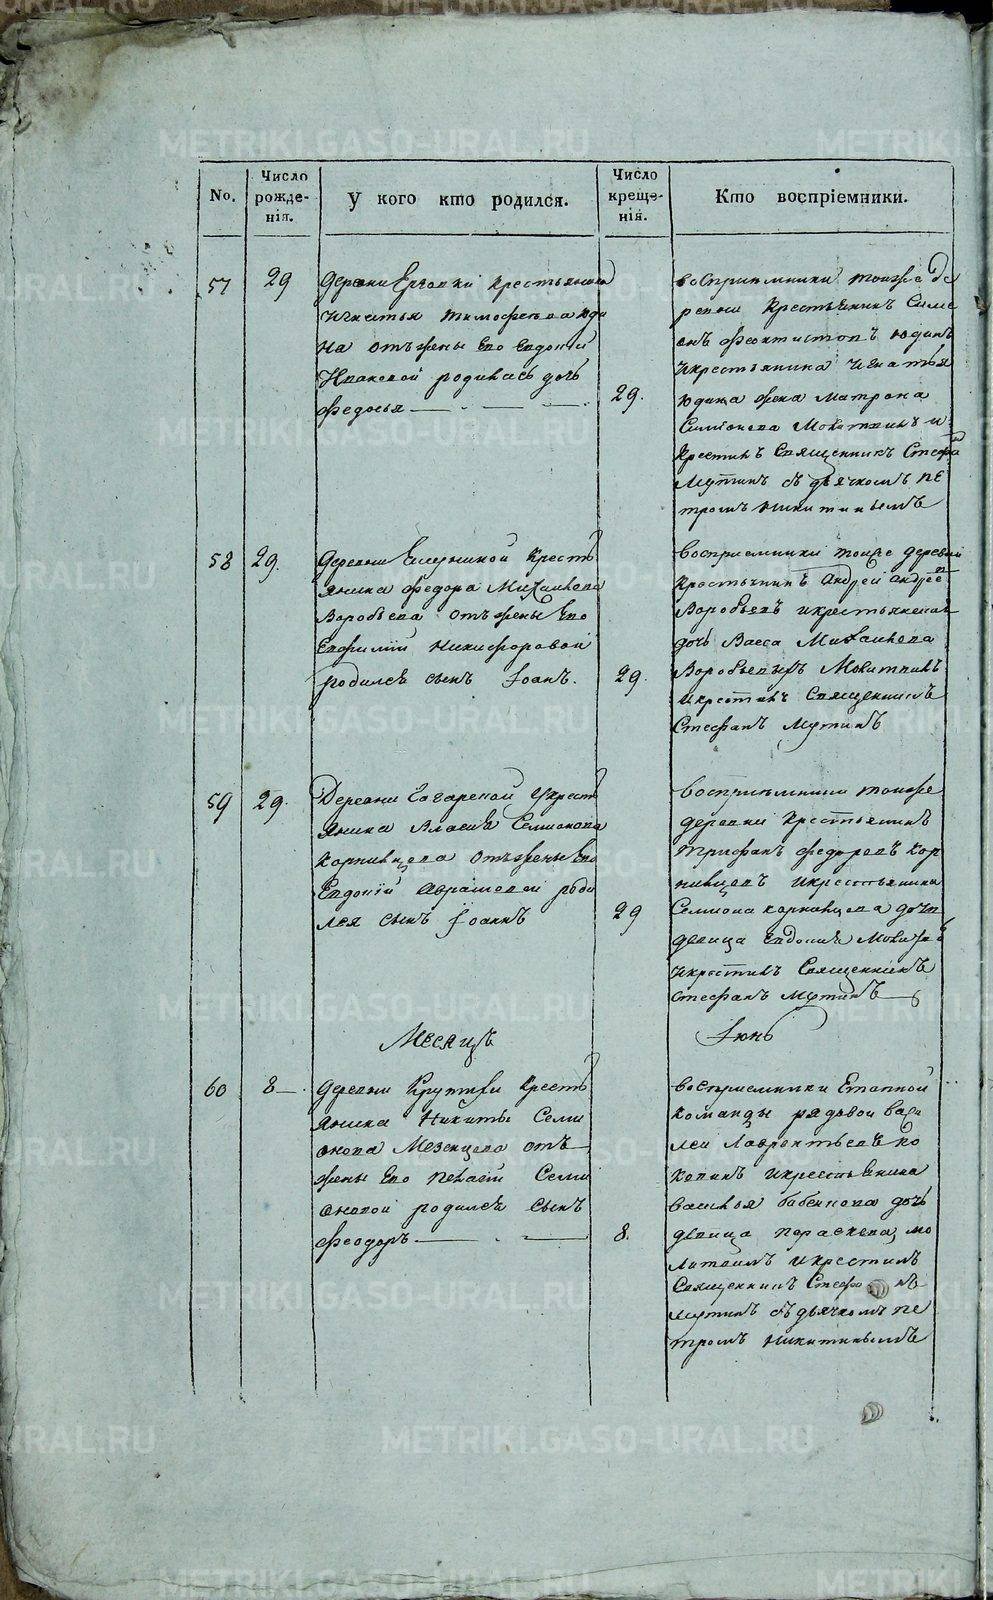 No.
Число рожде-нія.
У кого кто родился.
Число креще-нія.
Кто воспріемники.
57
29
деревни крестьянина
Игнатья Тимофеева Юди
на отъ жены Его Евдокіи
родилась дочь
Федосья
29.
восприемники тоиже де
ревни Крестьянинъ Симе
онъ Феоктистовъ Юдинъ
икрестьянина Игнатья
Юдина жена Матрона
Симіонова Молитвилъ и
Крестилъ Священникъ Стефа
Мутинъ съ дьячкомъ пе
тромъ Никитинымъ
58
29.
деревни крестъ
янина Федора Михаилова
Воробьева отъ жены Его
Евфиміи Никифоровой
родился сынъ Іоанъ.
29.
восприемники тоиже деревни
крестьянинъ Андрей Андрее
Воробьевъ икрестьянская
дочь Васса Михаилова
Воробьевыхъ Молитвилъ
икрестилъ Священникъ
Стефанъ Мутинъ
59
29.
Деревни Гагарской Укресть
янина Власія Семионова
Корпивцева отъ жены Его
Евдокіи Абрамовой роди
лся сынъ Іоаннъ
29
восприемники тоиже
деревни крестьянинъ
Трифанъ Федоровъ Кор
пивцевъ икрестьянина
Семиона Корпивцева дочь
девица Евдокия
икрестилъ Священникъ
Стефанъ Мутинъ
Месяцъ
Іюнь
60
8
деревни Крутихи крестъ
янина Никиты Семи
онова Мезенцова отъ
жены Его Пелагіи Семи
оновой родился сынъ
Феодоръ
8.
восприемники Етапной
команды рядовои Васи
леи Лаврентьевъ
икрестьянина
Васильа дочь
девица Параскева, мо
литвилъ икрестилъ
Священникъ Стефанъ
Мутинъ съ дьячкомъ пе
тромъ Никитинымъ
METRIKI.GASO-URAL.RU